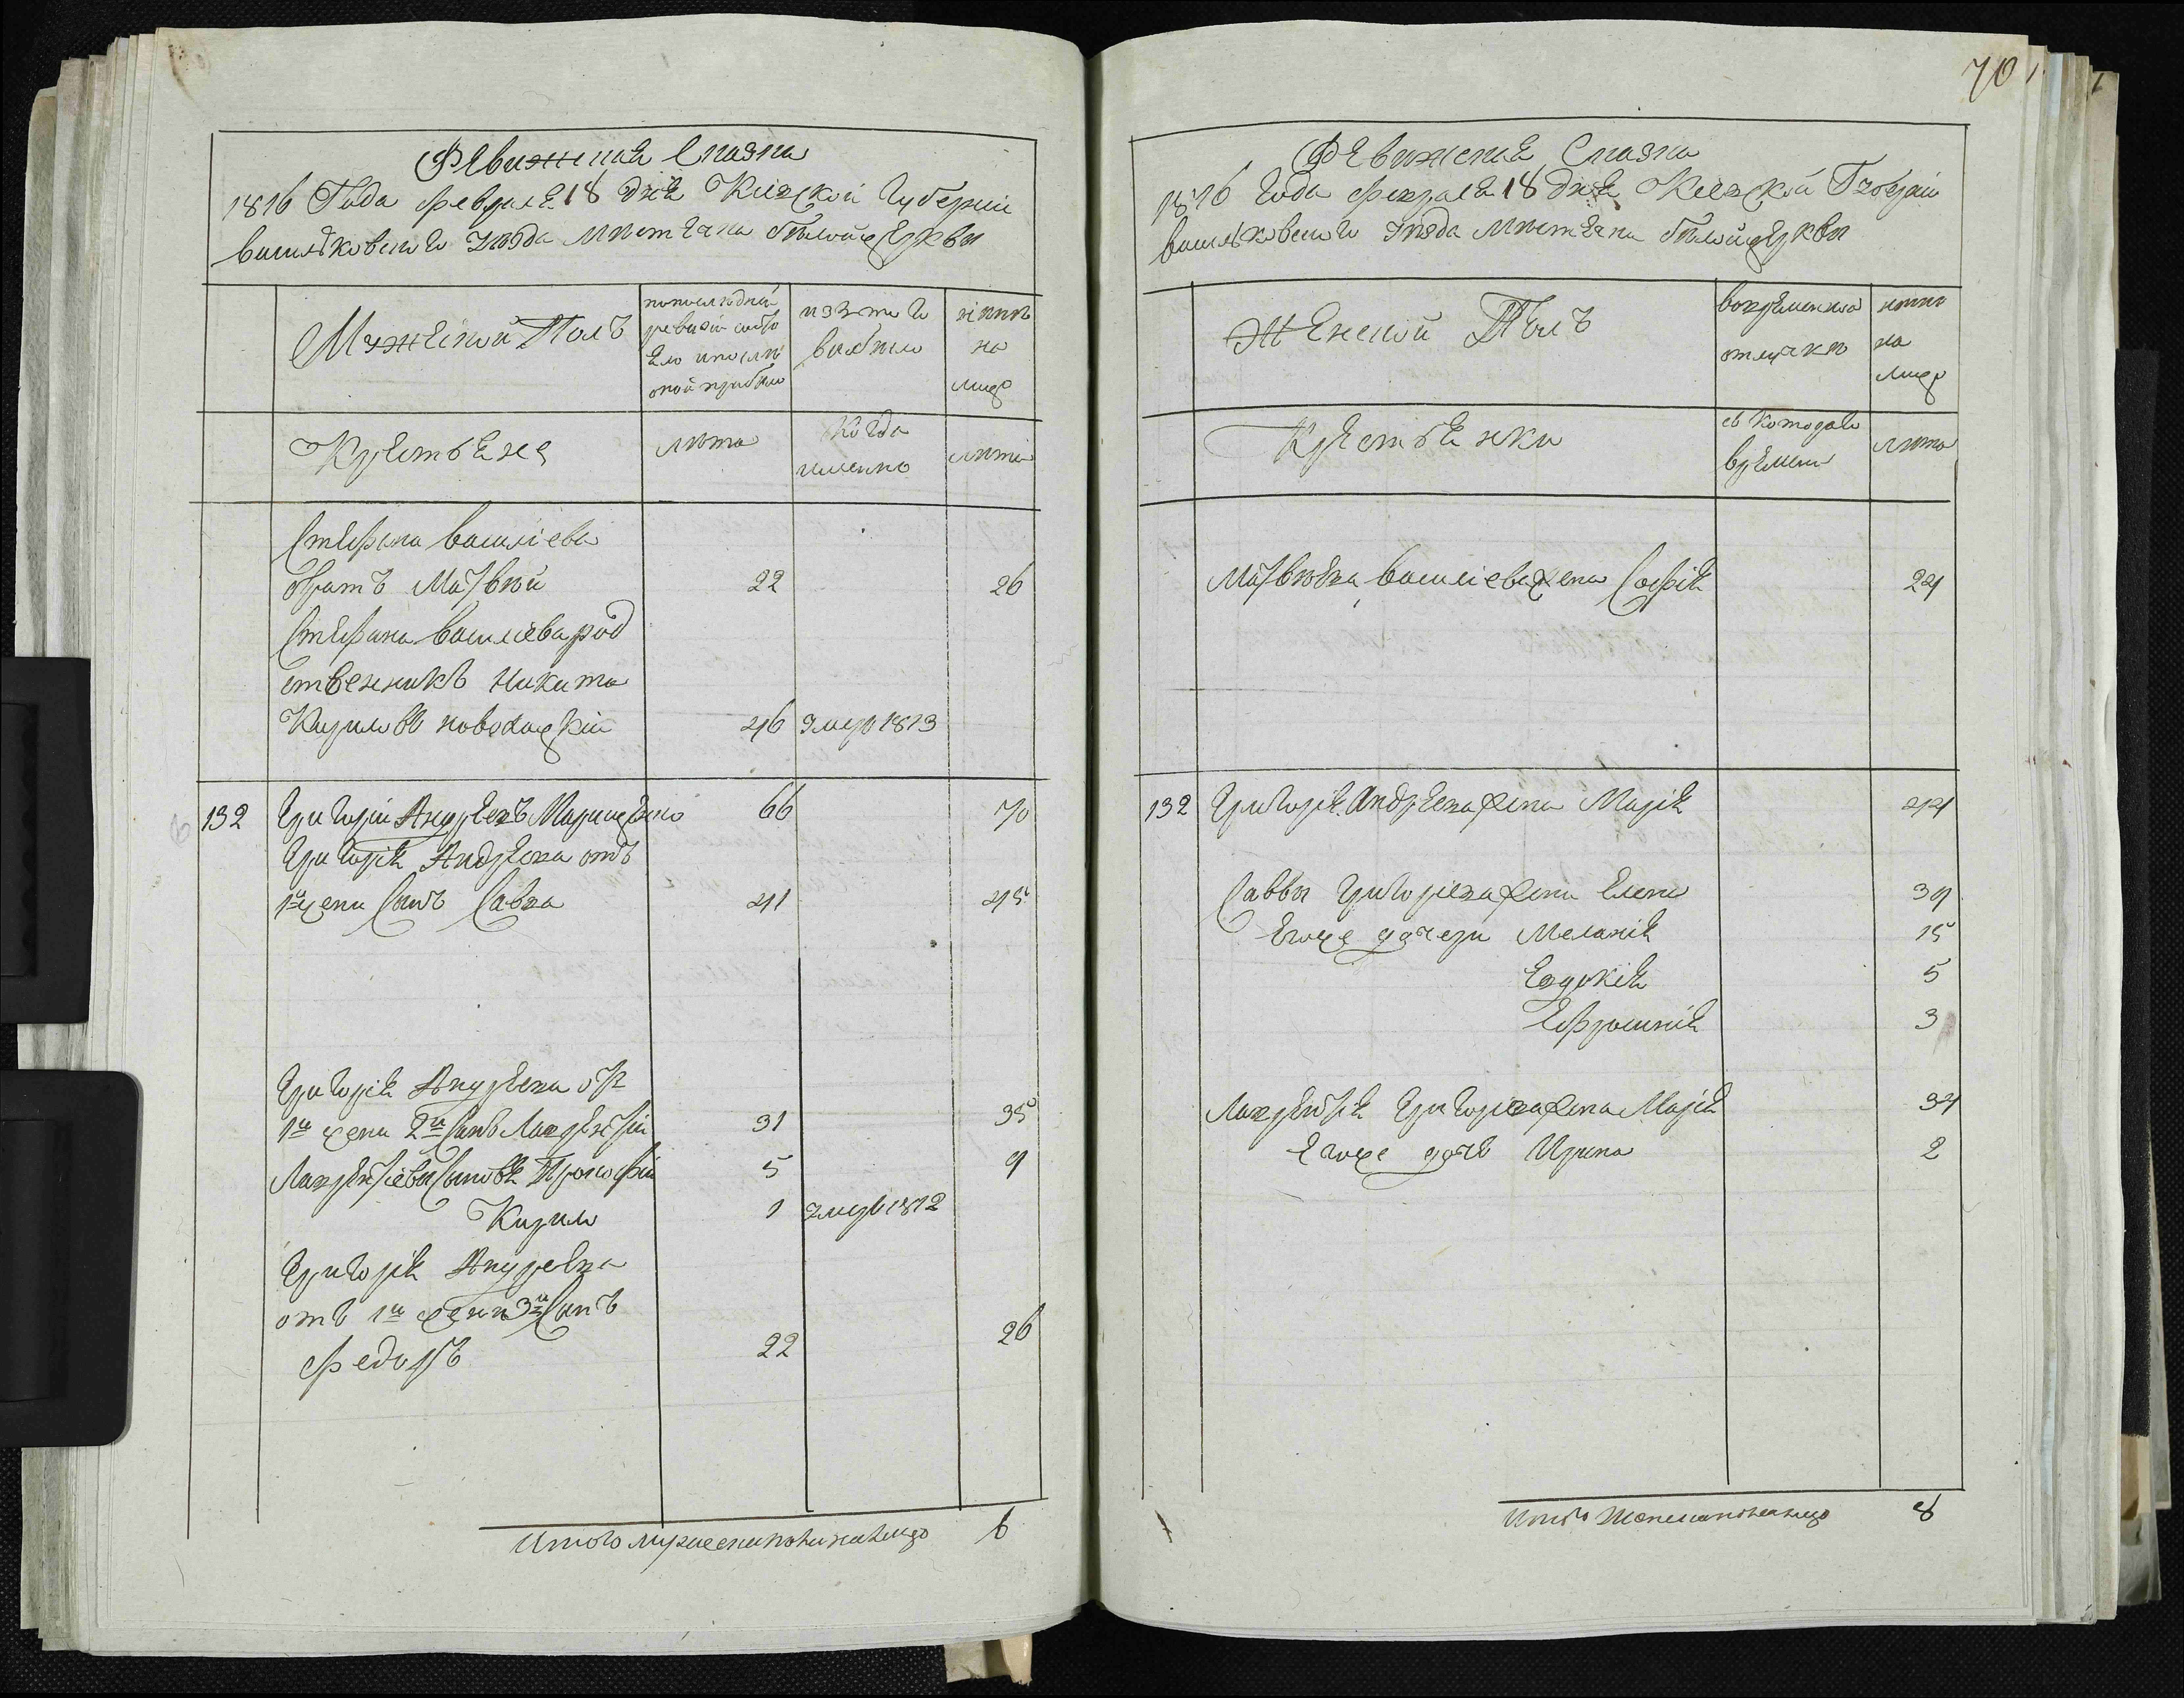 Ревижская Сказка
1816 Года февраля 18 дня Киевской Губернии
васильковского уезда местечка белойцеркви
Мужеской Полъ
попоследней
ревизии состо
яло и после
оной прибыло
изъ того
выбыло
ныне
на
лицо
Крестьяне
лета
Когда
именно
лета
Стефана василиева
братъ Матвей
22
26
Стефана василиева род
ственникъ Никита
Кириловъ новохацкий
46
умер 1813
132
Григорий Андреевъ Марищенко
66
70
Григория Андреева отъ
1й жены Сынъ Савва
41
45
Григория Андреева от
1й жены 2й Сынъ Лаврентий
31
35
Лаврентиевы Сыновья Прокофий
5
9
Кирило
1
умер 1812
Григория Андреева
отъ 1й жены 3й Сынъ
Федотъ
22
26
Итого мужеска пола налицо
6
70
Ревижская Сказка
1816 Года февраля 18 дня Киевской Губернии
васильковского уезда местечка белойцеркви
Женской Полъ
вовременной
отлучке
ныне
на
лицо
Крестьянки
съ которого
времени
лета
Матвея василиева жена София
24
132
Григория Андреева жена Мария
44
Саввы Григориева жена Елена
39
Егоже дочери Мелания
15
Евдокия
5
Ефросиния
3
Лаврентия Григориева жена Мария
34
Егоже дочь Ирина
2
Итого Женска пола налицо
8